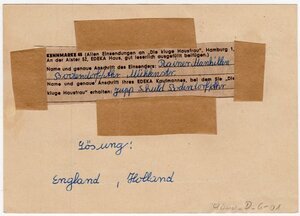 KENNMARKE 48 (Allen Einsendungen an „Die kluge Hausfrau", Hamburg 1,
An der Alster 52, EDEKA Haus, gut leserlich ausgefüllt beifügen.)
Name und genaue Anschrift des Einsenders: Rainer
Bodendorf/Ahr
Name und genaue Anschrift ihres EDEKA Kaufmannes, bei dem Sie „Die
kluge Hausfrau" erhalten: Jupp Schuld Bodendorf/Ahr
Lösung:
England , Holland